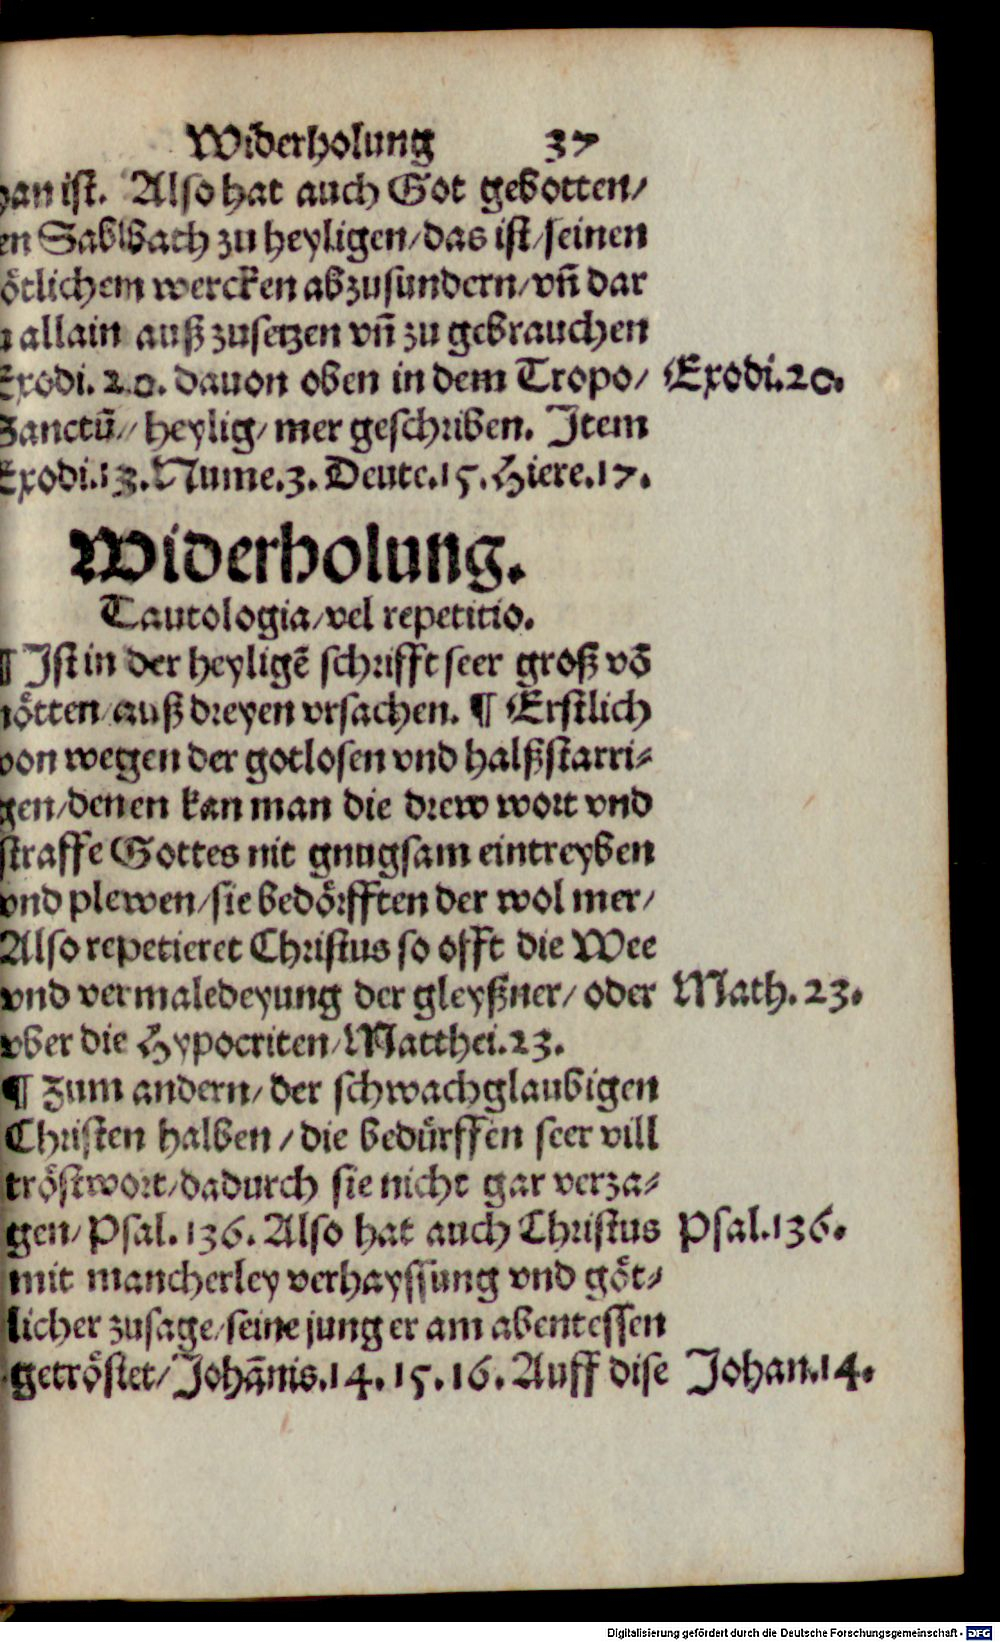 Widerholung 37
han ist. Also hat auch Got gebotten/
en Sabbath zu heyligen/das ist/seinen
ötlichem wercken abzusundern/vn̄ dar
allain auß zusetzen vn̄ zu gebrauchen
Exodi. 20. dauon oben in dem Tropo/ Exodi.20.
Sanctū// heylig/mer geschriben. Item
Exodi.13.Nume.3.Deute.15.Hiere.17.
Widerholung.
Tautologia/vel repetitio.
¶ Ist in der heyligē schrifft seer groß vō
nötten/auß dreyen vrsachen. ¶ Erstlich
von wegen der gotlosen vnd halßstarri⸗
gen/denen kan man die drew wort vnd
straffe Gottes nit gnugsam eintreyben
vnd plewen/sie bedörfften der wol mer/
Also repetieret Christus so offt die Wee
vnd vermaledeyung der gleyßner/ oder Math. 23.
vber die Hypocriten/Matthei.23.
¶ Zum andern/ der schwachglaubigen
Christen halben / die bedürffen seer vill
tröstwort/dadurch sie nicht gar verza⸗
gen/ Psal. 136. Also hat auch Christus Psal.136.
mit mancherley verhayssung vnd göt⸗
licher zusage/seine junger am abentessen
getröstet/Johānis.14. 15. 16. Auff dise Johan.14.
Digitalisierung gefördert durch die Deutsche Forschungsgemeinschaft - DFG